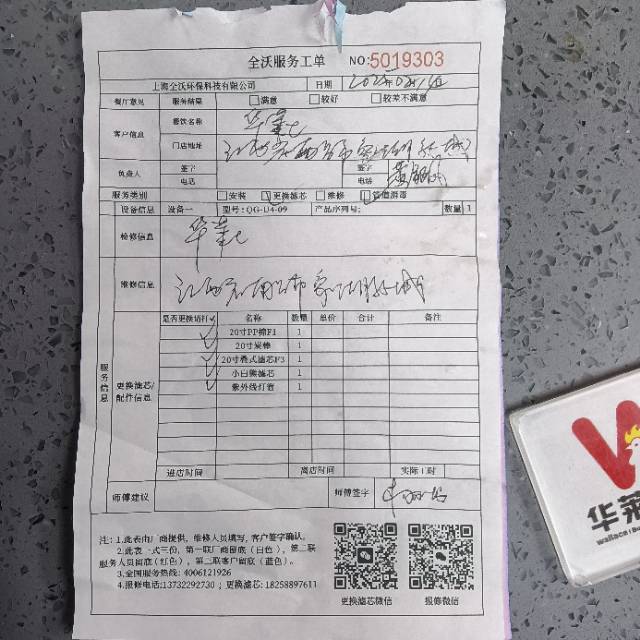 全沃服务工单 NO:5019303
上海全沃环保科技有限公司 日期
餐厅意见 服务结果 满意 较好 较差不满意
客户信息 餐饮名称 华莱士
门店地址
负责人 签字 签字
电话 电话
服务类别 安装 更换滤芯 维修 管道消毒
设备信息 设备一 型号:QG-U4-09 产品序列号: 数量 1
检修信息 华莱士
维修信息
服务信息 更换滤芯/配件信息
是否更换请打√ 名称 数量 单价 合计 备注
√ 20寸PP棉F1 1
√ 20寸炭棒 1
√ 20寸叠式滤芯F3 1
√ 小白熊滤芯 1
紫外线灯管 1
进店时间 离店时间 实际工时
师傅建议 师傅签字
注: 1.此表由厂商提供, 维修人员填写, 客户签字确认。
2.此表一式三份, 第一联厂商留底(白色), 第二联
服务人员留底(红色), 第三联客户留底(蓝色)。
3.全国服务热线: 4006121926
4.报修电话:13732292730 ; 更换滤芯: 18258897611
更换滤芯微信 报修微信
华莱
wallace